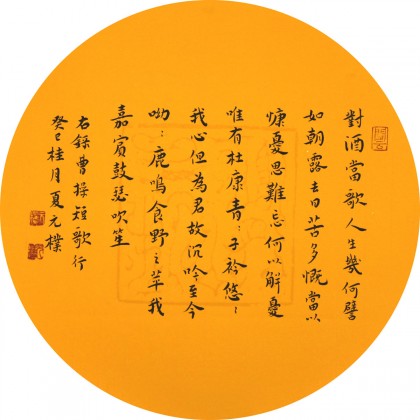 對酒當歌人生幾何譬
如朝露去日苦多慨當以
慷憂思難忘何以解憂
唯有杜康青〻子衿悠〻
我心但為君故沉吟至今
呦〻鹿鳴食野之苹我
嘉賓鼓瑟吹笙
右錄曹操短歌行
癸巳桂月夏元樸